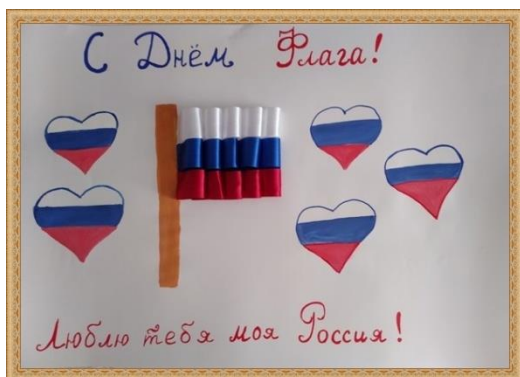 С Днём Флага!
Люблю тебя моя Россия!